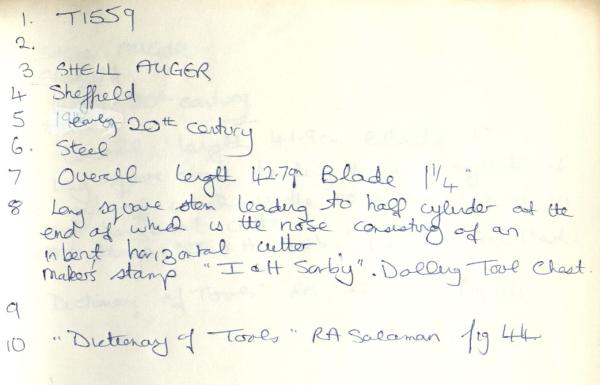 1. T1559
2.
3 SHELL AUGER
4 Sheffield
5 early 20th century
6. Steel
7 Overall Length 42.7cm Blade 1 1/4"
8 Long square stem leading to half cylinder at the
end of which is the nose consisting of an
inbent horizontal cutter
makers stamp "I & H Sorby". Dolling Tool Chest.
9
10 "Dictionary of Tools" RA Salaman fig 44